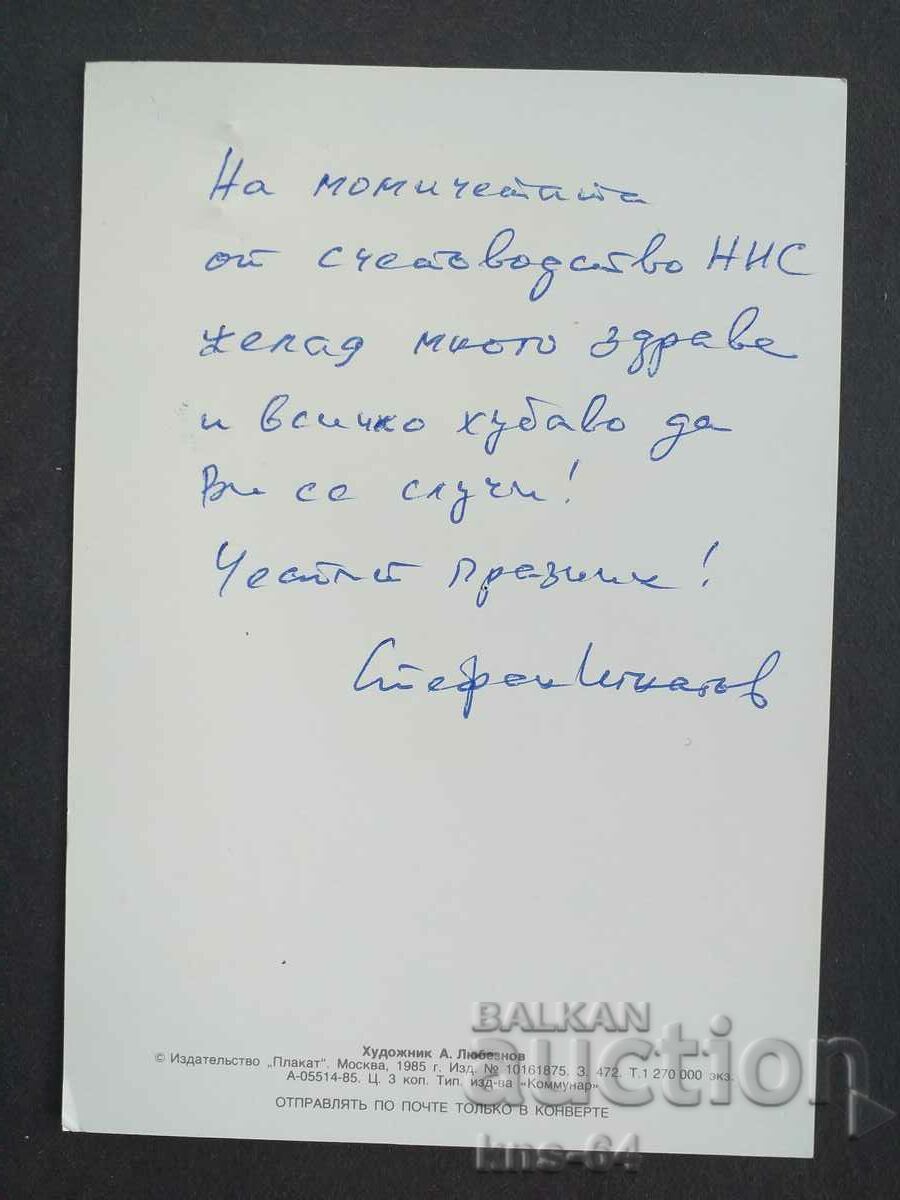 На момичетата
от счетоводство НИС
желая много здраве
и всичко хубаво да
Ви се случи!
Честит празник!
Стефан Игнатов
Художник А. Любезнов
© Издательство „Плакат". Москва, 1985 г. Изд. № 10161875. З. 472. Т.1 270 000 экз.
А-05514-85. Ц. 3 коп. Тип. изд-ва «Коммунар»
ОТПРАВЛЯТЬ ПО ПОЧТЕ ТОЛЬКО В КОНВЕРТЕ
BALKAN
auction
kns-64